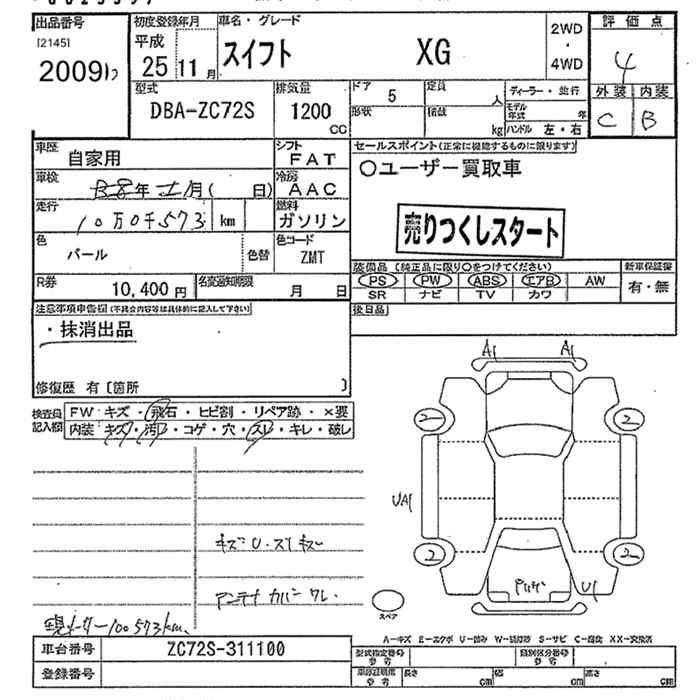 出品番号 初度登録年月 車名・グレード 2WD・4WD 評価点
[2145] 平成
20091 25 11月 スイフト XG 4
型式 排気量 ドア 5 定員 人 ディーラー・並行 外装 内装
DBA-ZC72S 1200 CC 形状 積載 kg モデル年式 年 ハンドル 左・右 C B
車歴 自家用 シフト FAT セールスポイント(正常に機能するものに限ります)
車検 年 月( 日) 冷房 AAC ○ユーザー買取車
走行 10万0千573 km 燃料 ガソリン 売りつくしスタート
色 パール 色替 色コード ZMT
装備品 (純正品に限り○をつけてください) 新車保証書
R券 10,400円 名変通知期限 月 日 PS PW ABS エアB AW 有・無
SR ナビ TV カワ
注意事項申告欄(不具合内容等は具体的に記入して下さい) 後日品
・抹消出品
修復歴 有 [箇所 ]
A1 A1
検査員記入欄 FW:キズ・飛石・ヒビ割・リペア跡・×要
内装:キズ・汚レ・コゲ・穴・スレ・キレ・破レ
2 2
UA1
キズU・スリキズ
2 2
アンテナカバーワレ U1
スペア
現メーター100573km
A-キズ E-エクボ U-凹み W-補修跡 S-サビ C-腐食 XX-交換済
車台番号 ZC72S-311100 型式指定番号 参考 類別区分番号 参考
登録番号 車検証記載 参考 長さ cm 幅 cm 高さ cm